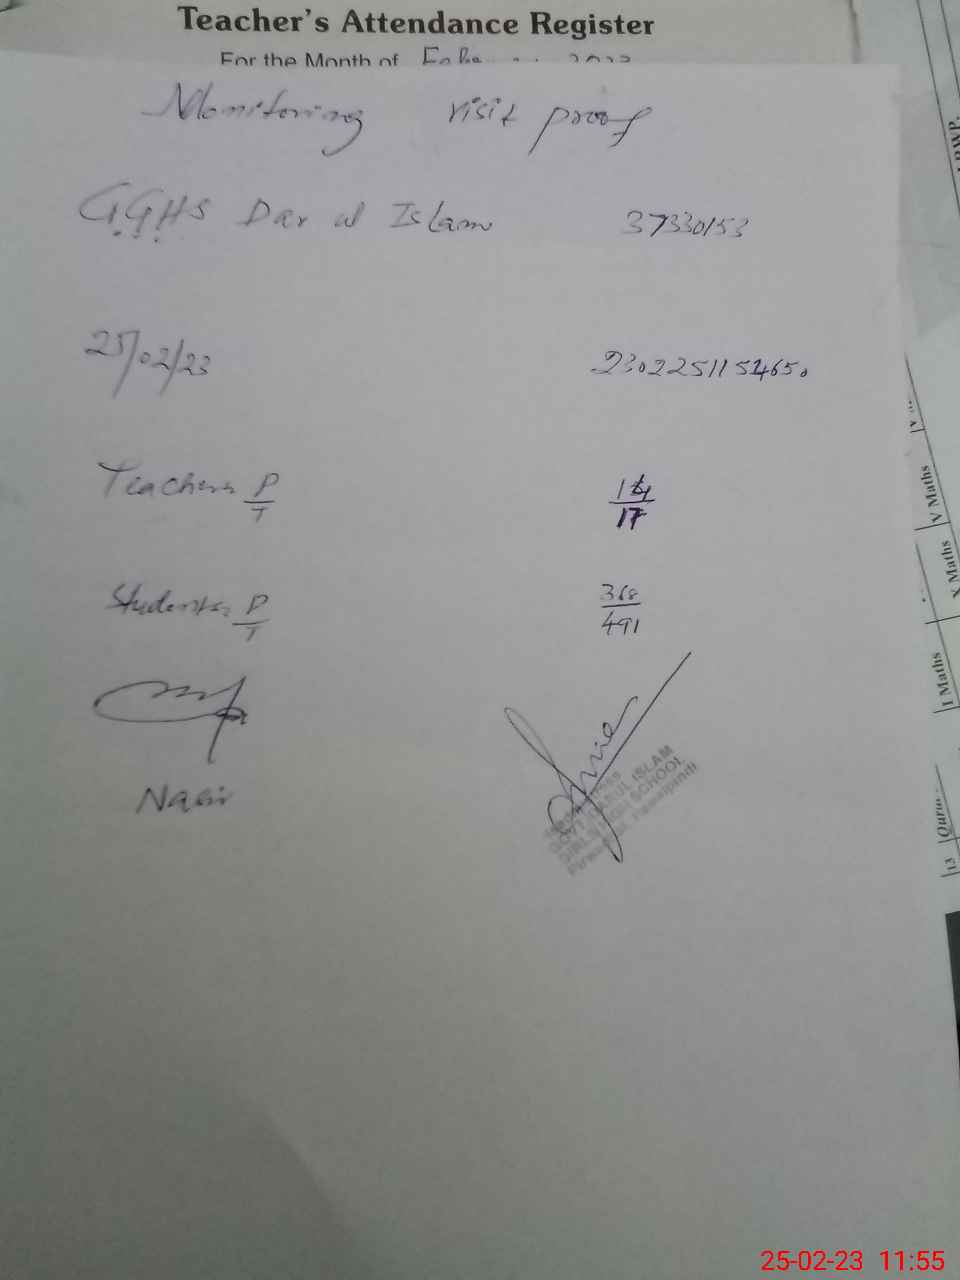 Teacher's Attendance Register
For the Month of
Monitoring visit proof
G.G.H.S Dar ul Islam 37330153
25/02/23 230225115465.
Teachers P/T 14/17
Students P/T 368/491
Nasir
GOVT DARUL ISLAM
GIRLS HIGH SCHOOL
Rawalpindi
V Maths
X Maths
I Maths
13
25-02-23 11:55